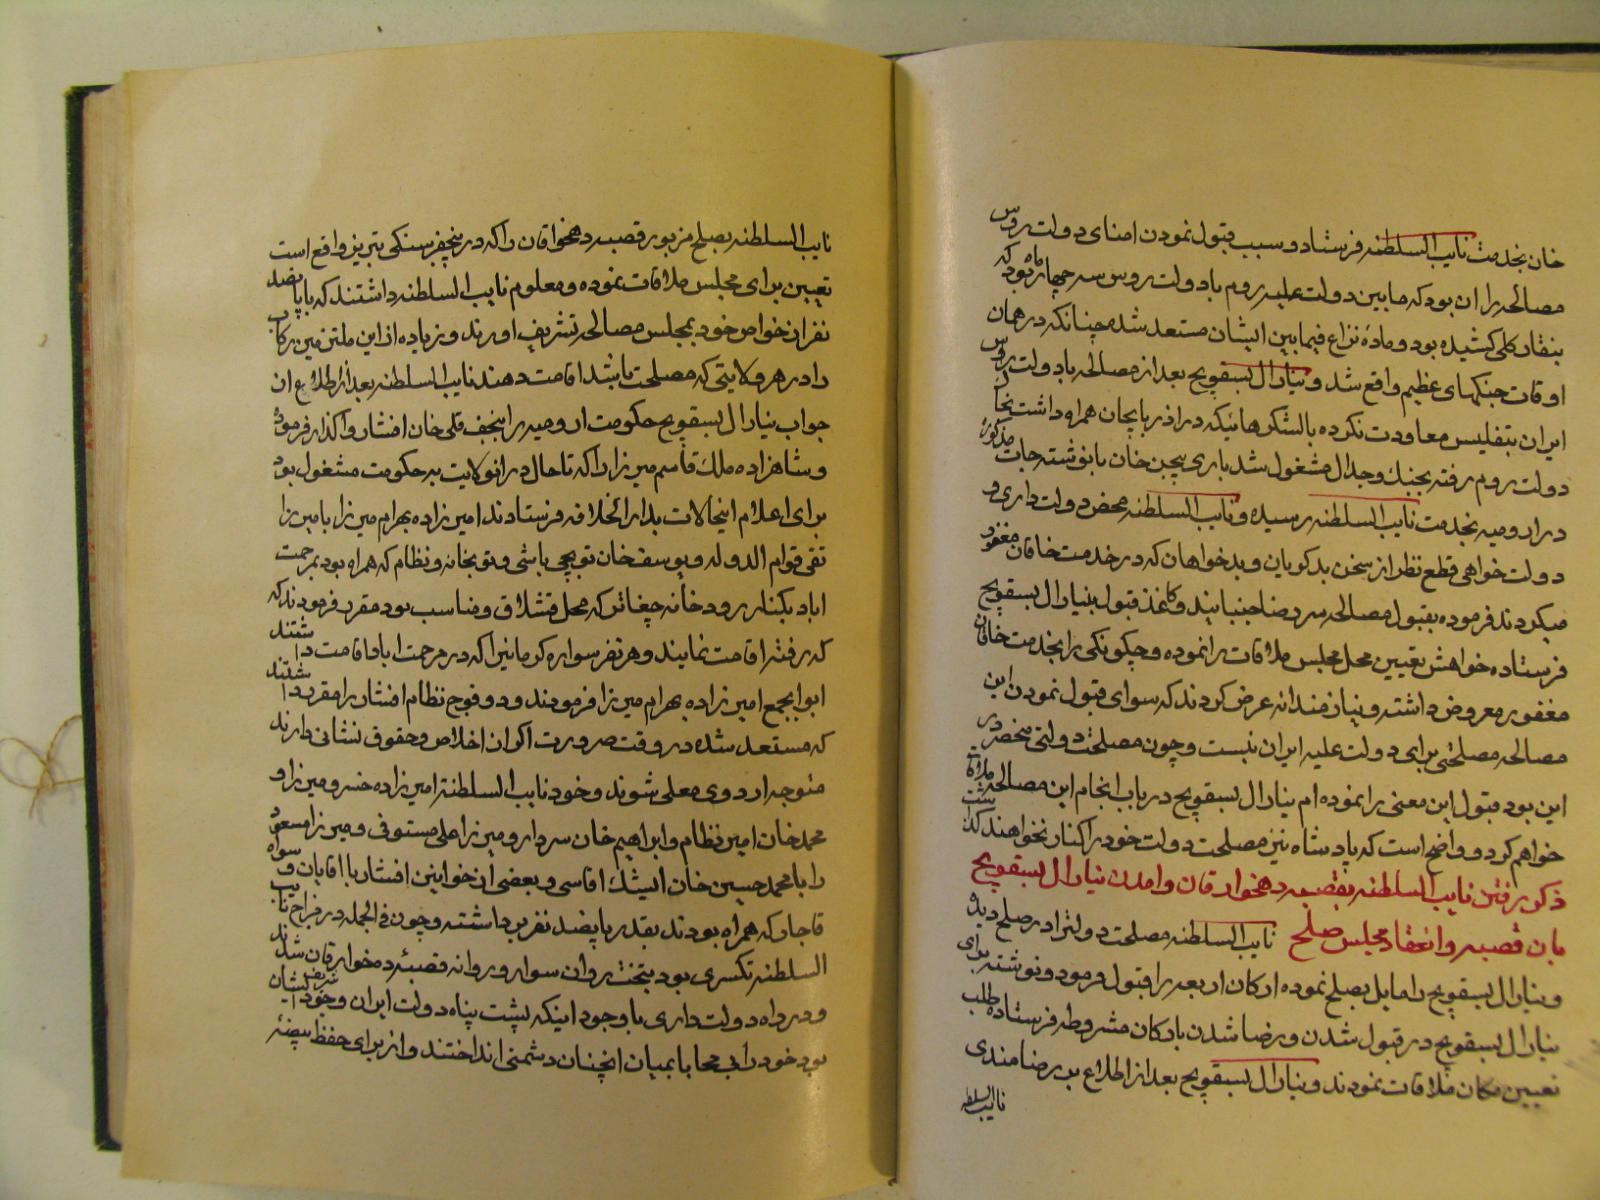 خان بخدمت نایب السلطنه فرستاد و سبب قبول نمودن امنای دولت روس
مصالحه را ان بود که مابین دولت علیه روم با دولت روس سه چهار ماه بود که
بنقار کلی کشیده بود و ماده نزاع فیمابین ایشان مستعد شده چنانکه در همان
اوقات جنکهای عظیم واقع شد و ینارال بسقویچ بعد از مصالحه با دولت روس
ایران بتفلیس معاودت نکرده بالشکرهائیکه در اذربایجان همراه داشت بخاک
دولت روم رفته بجنک و جدال مشغول شد باری بیجن خان با نوشته جات مذکوره
در ارومیه بخدمت نایب السلطنه رسیده و نایب السلطنه محض دولت داری و
دولت خواهی قطع نظر از سخن بدکویان و بدخواهان که در خدمت خاقان مغفور
میکردند فرموده بقبول مصالحه سر رضا جنبانیند و کاغذ قبول بینارال بسقویچ
فرستاده خواهش تعیین محل مجلس ملاقات را نموده و چکونکی را بخدمت خاقان
مغفور معروض داشته و نیازمندانه عرض کردند که سوای قبول نمودن این
مصالحه مصلحتی برای دولت علیه ایران نیست و چون مصلحت دولتی منحصر در
این بود قبول این معنی را نموده ام ینارال بسقویچ در باب انجام این مصالحه ملاقات
خواهم کرد و واضح است که پادشاه نیز مصلحت دولت خود را کنار نخواهند کذاشت
ذکر رفتن نایب السلطنه بقصبه دهخوارقان و امدن ینارال بسقویچ
بان قصبه و انعقاد مجلس صلح نایب السلطنه مصلحت دولترا در صلح دیده
و ینارال بسقویچ را مایل بصلح نموده ارکان اربعه را قبول فرمود و نوشته برای
ینارال بسقویچ در قبول شدن و رضا شدن بارکان مشروطه فرستاده طلب
تعیین مکان ملاقات نمودند و ینارال بسقویچ بعد از اطلاع بر رضامندی
نایب السلطنه
نایب السلطنه بصلح مزبور قصبه دهخوارقان را که در پنجفرسنکی تبریز واقع است
تعیین برای مجلس ملاقات نموده و معلوم نایب السلطنه داشتند که با پانصد
نفر از خواص خود بمجلس مصالحه تشریف اورند و زیاده از این ملتزمین رکاب
را در هر ولایتی که مصلحت باشد اقامت دهند نایب السلطنه بعد از اطلاع از
جواب ینارال بسقویچ حکومت ارومیه را بنجف قلی خان افشار واکذار فرموده
و شاهزاده ملک قاسم میرزا را که تا حال در انولایت به حکومت مشغول بود
برای اعلام اینحالات بدار الخلافه فرستادند امیرزاده بهرام میرزا با میرزا
تقی قوام الدوله و یوسف خان توپچی باشی و توپخانه و نظام که همراه بود بمرحمت
اباد بکنار رودخانه جغاتو که محل قشلاق و مناسب بود مقرر فرمودند که
که رفته اقامت نمایند و هر نفر سواره کرمانیرا که در مرحمت اباد اقامت داشتند
ابوابجمع امیرزاده بهرام میرزا فرمودند و دو فوج نظام افشار را مقرر داشتند
که مستعد شده در وقت ضرورت اکر از اخلاص و حقوق نشانی دارند
متوجه اردوی معلی شوند و خود نایب السلطنه امیرزاده خسرو میرزا و
محمد خان امیر نظام و ابراهیم خان سردار و میرزا علی مستوفی و میرزا مسعود
را با محمد حسین خان ایشک اقاسی و بعضی از خوانین افشار با اقایان و سواره
قاجار که همراه بودند بقدر پانصد نفر برداشته و چون فی الجمله در مزاج نایب
السلطنه تکسری بود بتخت روان سوار و روانه قصبه دهخوارقان شدند
و در راه دولت داری با وجود اینکه پشت پناه دولت ایران وجود شریف ایشان
بود خود را بی محابا بمیان انچنان دشمنی انداختند و از برای حفظ بیضه